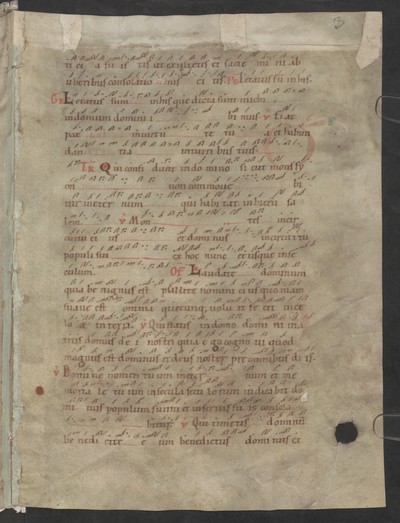 uberibus consolatio nis Letatus sum in his.
GR Letatus sum in his que dicta sunt michi
in domum domini i bi mus V Fiat
pax in uirtu te tu a et habun
dan tia in turri bus tuis
TR Qui confi dunt in domino si cut mons sy
on non commoue bi
tur in eter num qui habi tat in hieru sa
lem. V Mon tes in cir
cuitu ei us et dominus in circuitu
populi sui ex hoc nunc et usque in se
culum. OF Laudate dominum
quia be nignus est psallite nomini eius quoniam
suaue est omnia quecumque uolu it fe cit in ce
lo et in terra V Qui statis in domo domini in a
triis domus de i nostri quia ego cogno ui quod
magnus est dominus et deus noster pre omnibus di is.
V Domine nomen tuum in eter num et me
moria le tu um in secula seculorum iudicabit do
mi nus populum suum et in seruis su is consola
bitur. V Qui timetis dominum
be nedi cite e um benedictus dominus ex